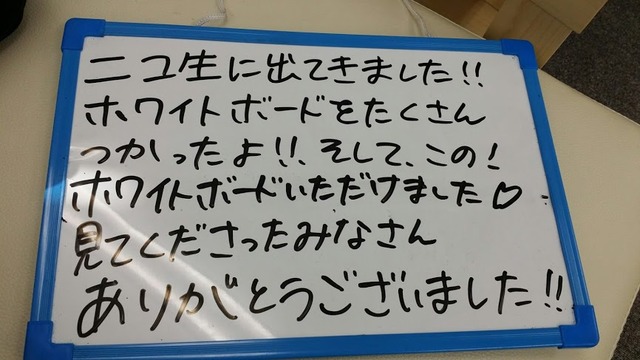 ニコ生に出てきました!!
ホワイトボードをたくさん
つかったよ!!、そして、この!
ホワイトボードいただけました♡
見てくださったみなさん
ありがとうございました!!